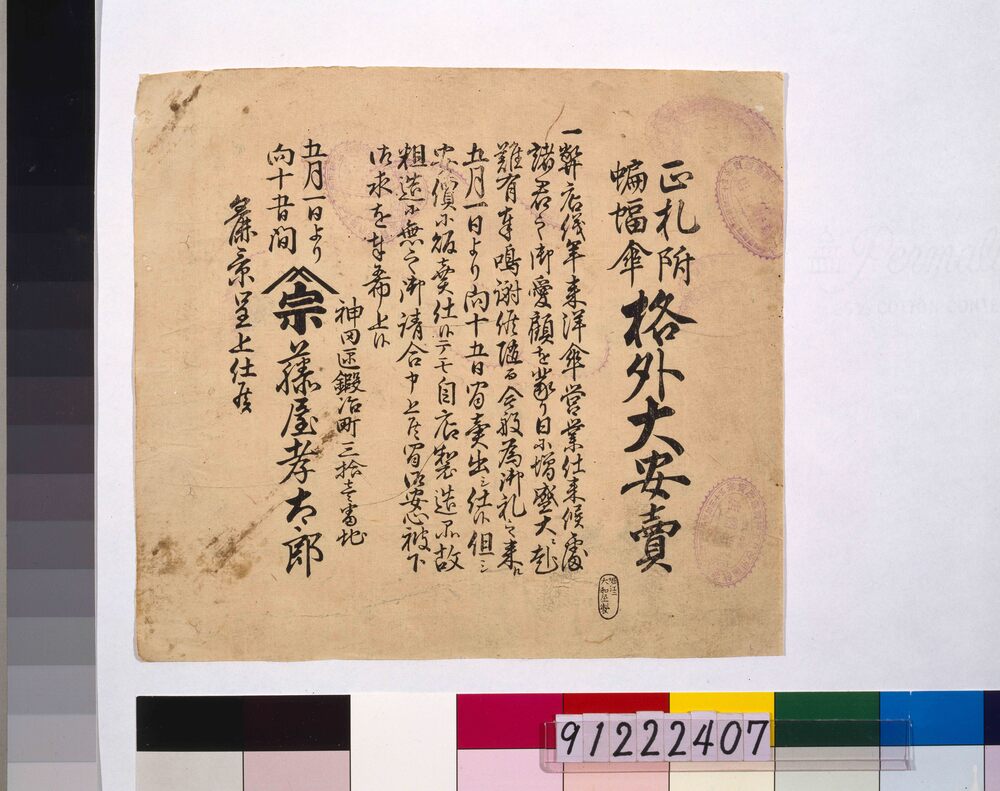 正札附
蝙蝠傘
格外大安賣
一弊店後年来洋傘營業仕来候處
諸君之御愛顧を蒙り日ニ増盛大ニ趣
難有奉鳴謝候随而今般為御礼之来ル
五月一日より向十五日間賣出シ仕候但シ
安價ニ販賣仕候テモ自店製造品故
粗造ニ無之御請合申上候間御安心被下
御求を奉希上候
神田區鍛冶町三拾壱番地
五月一日より
向十五日間
宗
藤屋孝太郎
麁景呈上仕候
91222407